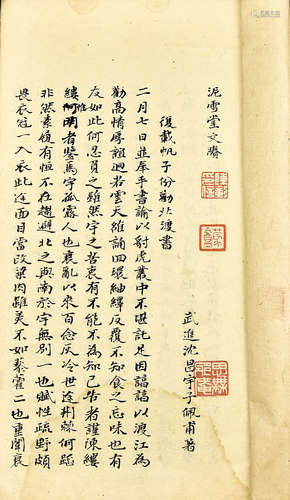 泥雪堂文賸
武進沈昌宇子佩甫著
復戴帆子份勸北渡書
二月七日並奉手書諭以豺虎叢中不堪託足因諄諄以渡江為
勸高情厚誼迥若雲天雖誦四環紬繹反覆不知食之忘味也有
友如此何忍負之雖然宇之苦衷有不能不為知己告者謹陳縷
縷惟明者鑒焉宇孤露人也喪亂以來百念灰冷世途荊棘何蹈
非然素履有恒不在趨避北之與南於宇無別一也賦性疏野頗
畏衣冠一入衣此途面目當改粱肉雖美不如藜藿二也重闈衰